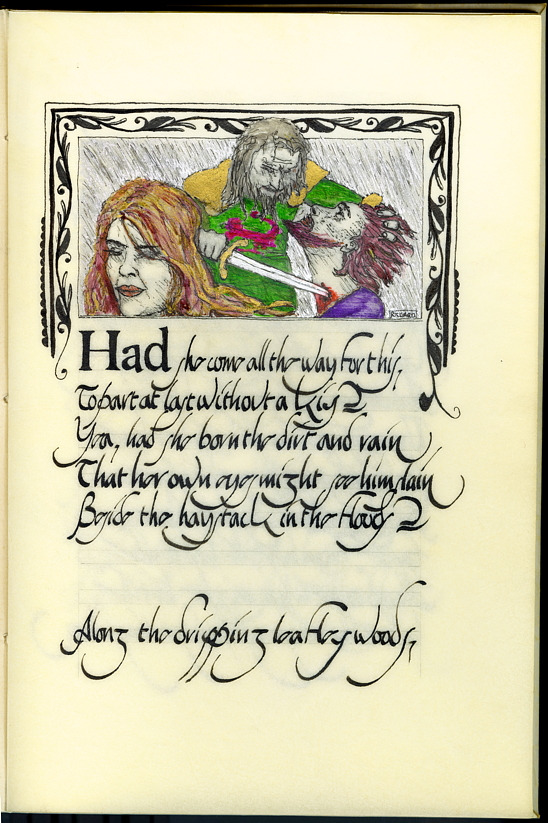 Had she come all the way for this,
To part at last without a kiss?
Yea, had she born the dirt and rain
That her own eyes might see him slain
Beside the haystack in the floods?
Along the dripping leafless woods,